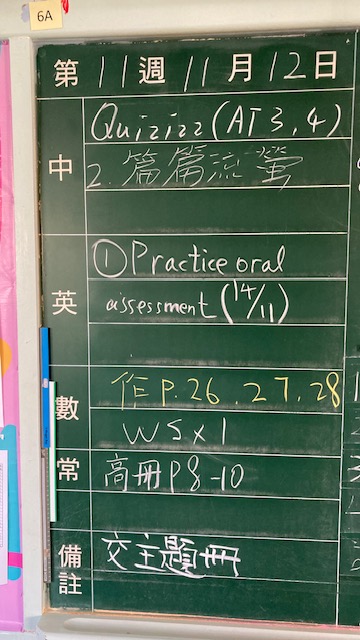 6A
第11週11月12日
中
Quizizz(AT3,4)
2. 篇篇流螢
英
① Practice oral
assessment (14/11)
數
作 P.26.27.28
WS x 1
常
高冊 P8-10
備註
交主題冊